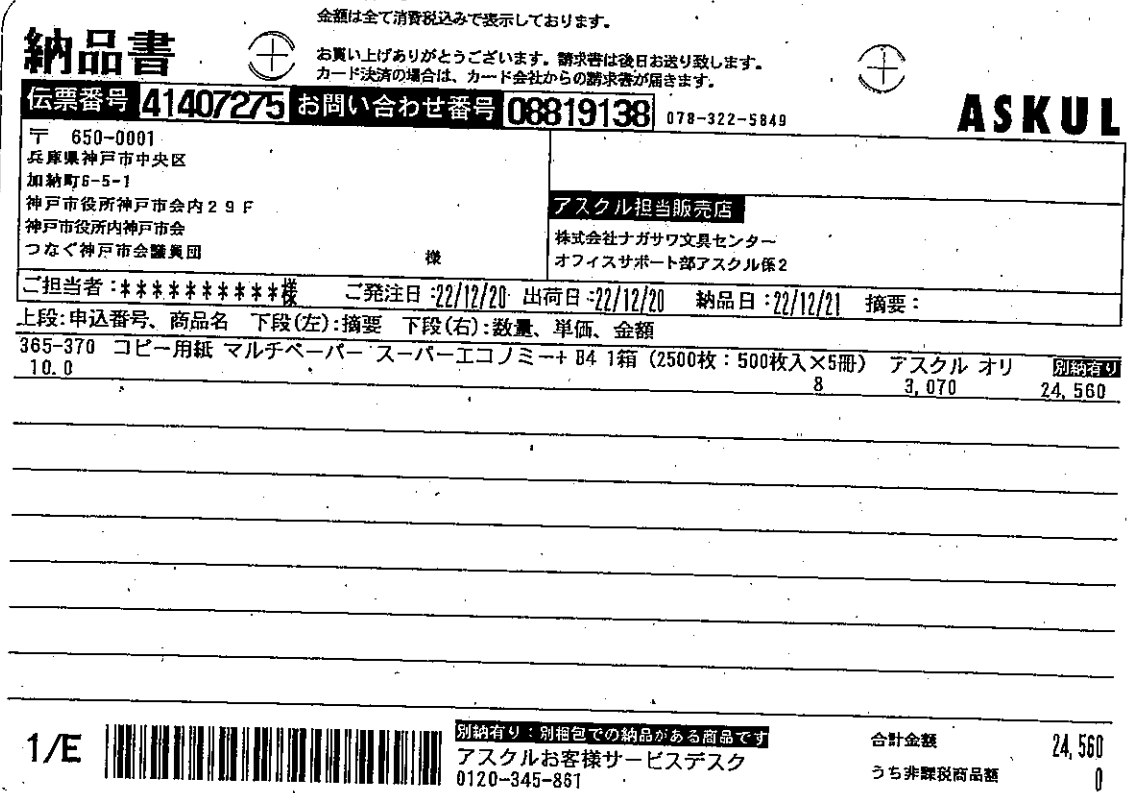 金額は全て消費税込みで表示しております。
納品書
お買い上げありがとうございます。請求書は後日お送り致します。
カード決済の場合は、カード会社からの請求書が届きます。
伝票番号 41407275 お問い合わせ番号 08819138 078-322-5849
ASKUL
〒 650-0001
兵庫県神戸市中央区
加納町6-5-1
神戸市役所神戸市会内29F
神戸市役所内神戸市会
つなぐ神戸市会議員団 様
アスクル担当販売店
株式会社ナガサワ文具センター
オフィスサポート部アスクル係2
ご担当者:**********様 ご発注日:22/12/20 出荷日:22/12/20 納品日:22/12/21 摘要:
上段:申込番号、商品名 下段(左):摘要 下段(右):数量、単価、金額
365-370 コピー用紙 マルチペーパー スーパーエコノミー+ B4 1箱 (2500枚:500枚入×5冊) アスクル オリ 別納有り
10.0 8 3,070 24,560
1/E
別納有り:別梱包での納品がある商品です
アスクルお客様サービスデスク
0120-345-861
合計金額 24,560
うち非課税商品額 0